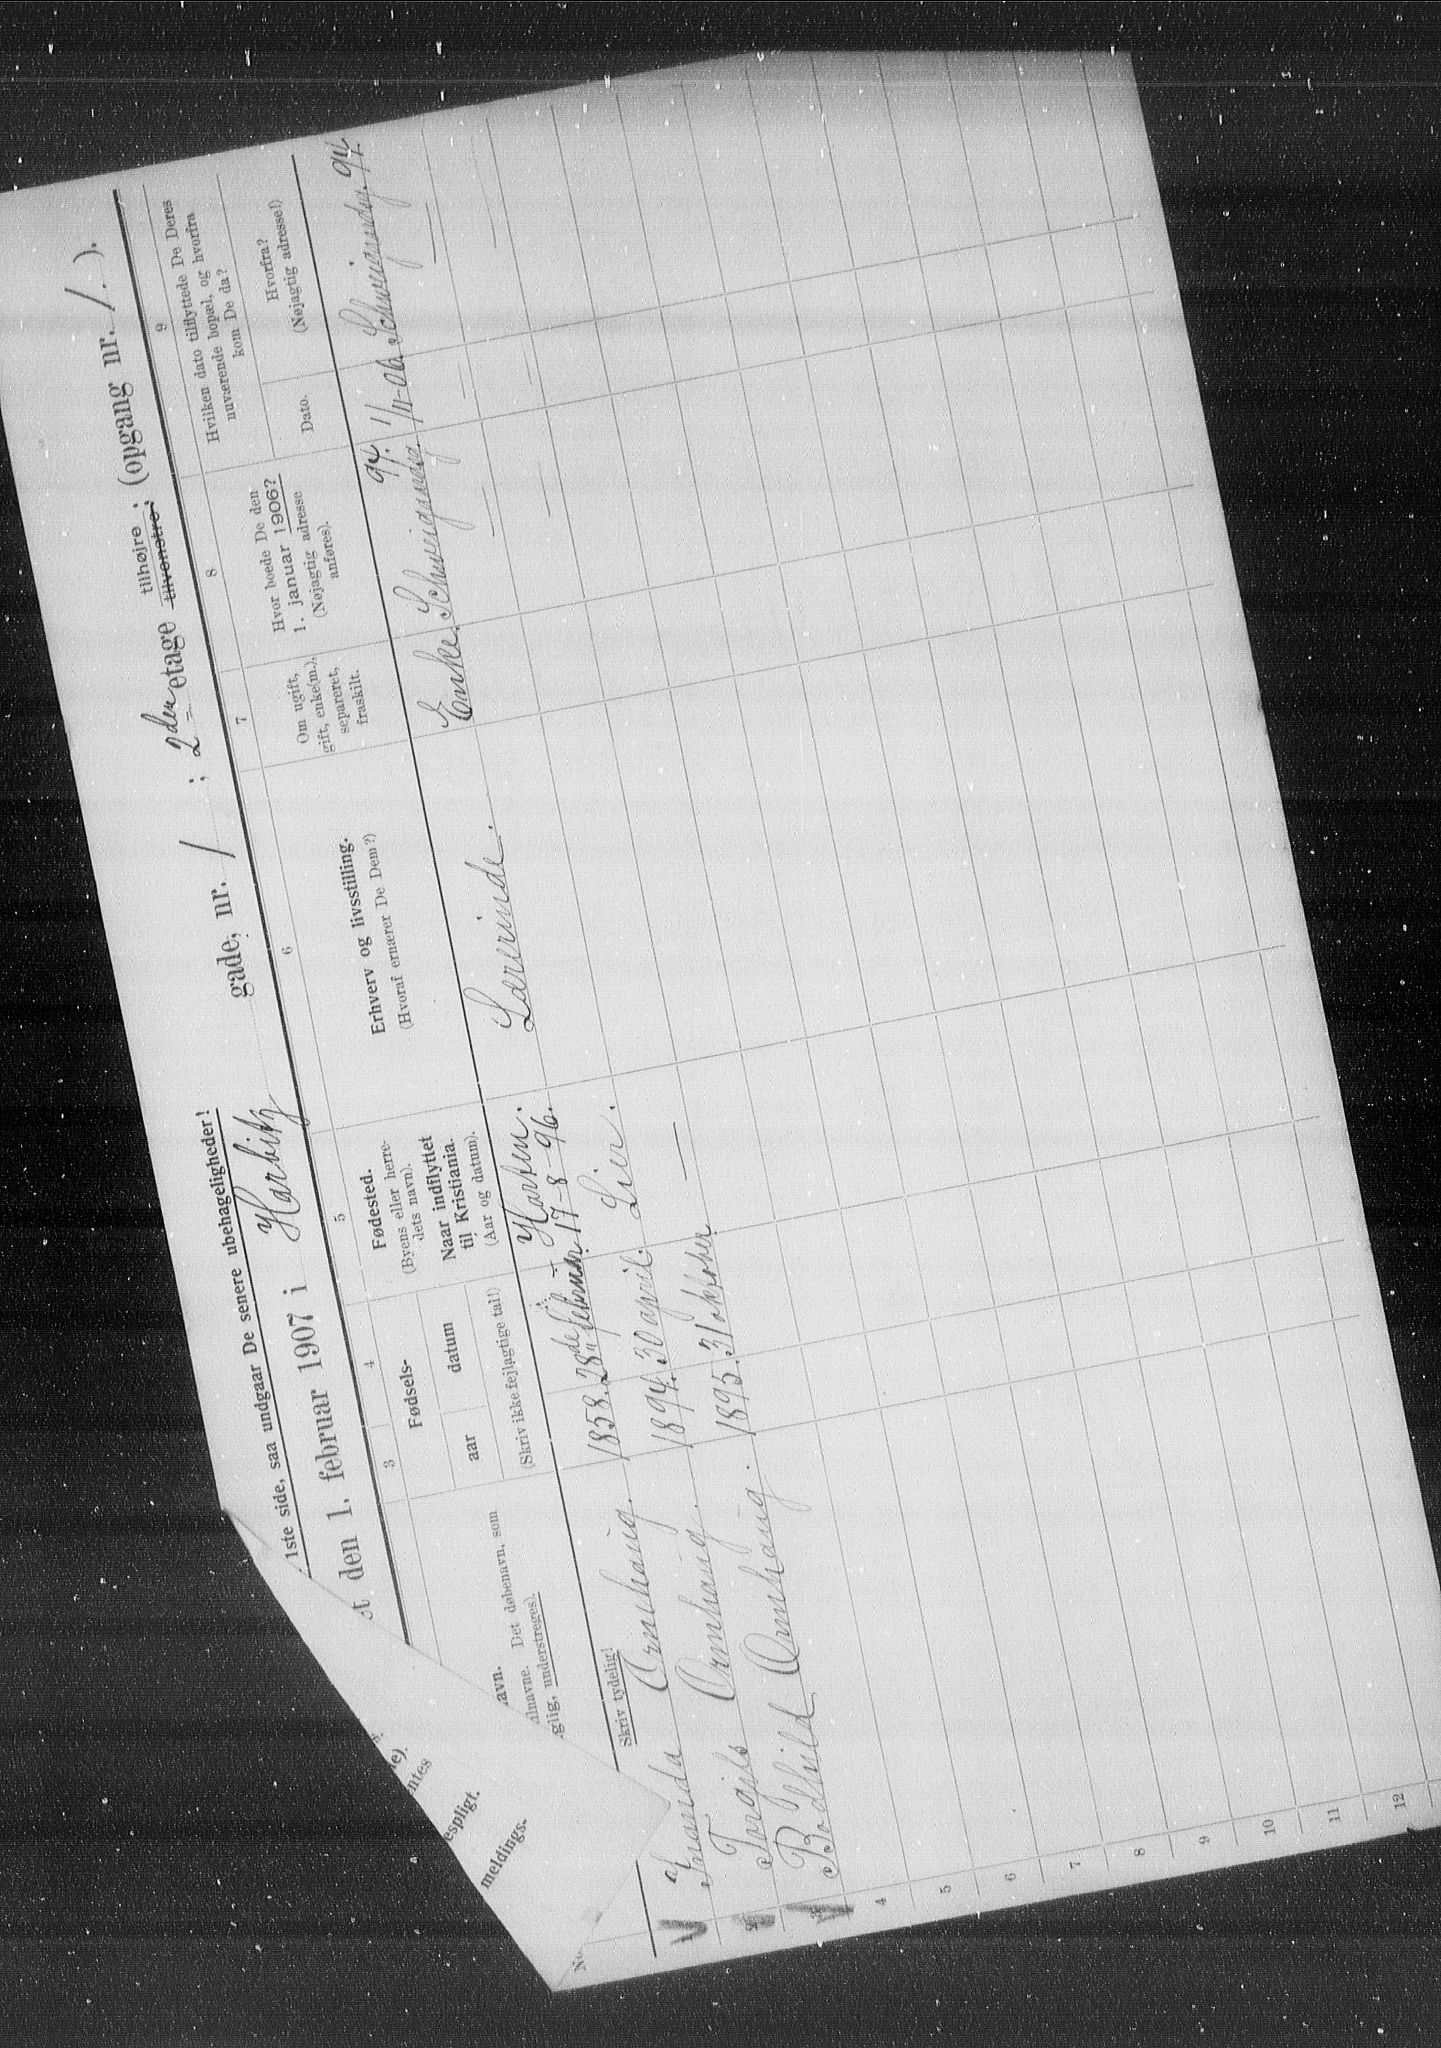 1ste side, saa undgaar De senere ubehageligheder!
den 1. februar 1907 i Harbitz gade, nr. 1 ; 2den etage tilhøjre ; tilvenstre ; (opgang nr. 1.).
3
4
5
6
7
8
9
avn.
Det døbenavn, som
understreges).
Skriv tydelig!
Fødsels-
aar
datum
(Skriv ikke fejlagtige tal!)
Fødested.
(Byens eller herre-
dets navn).
Naar indflyttet
til Kristiania.
(Aar og datum).
Erhverv og livsstilling.
(Hvoraf ernærer De Dem?)
Om ugift,
gift, enke(m.),
separeret,
fraskilt.
Hvor boede De den
1. januar 1906?
(Nøjagtig adresse
anføres).
Hvilken dato tilflyttede De Deres
nuværende bopæl, og hvorfra
kom De da?
Dato.
Hvorfra?
(Nøjagtig adresse!)
Armhaug. 1858. 28de februar. 17-8-96. Lærerinde. Enke. 94. 1/11-06. 94
Torgils Armhaug. 1894. 30 april. Lier. —
Bodhild Armhaug. 1895. 31 oktober. —
4
5
6
7
8
9
10
11
12
ntes
espligt.
meldings.